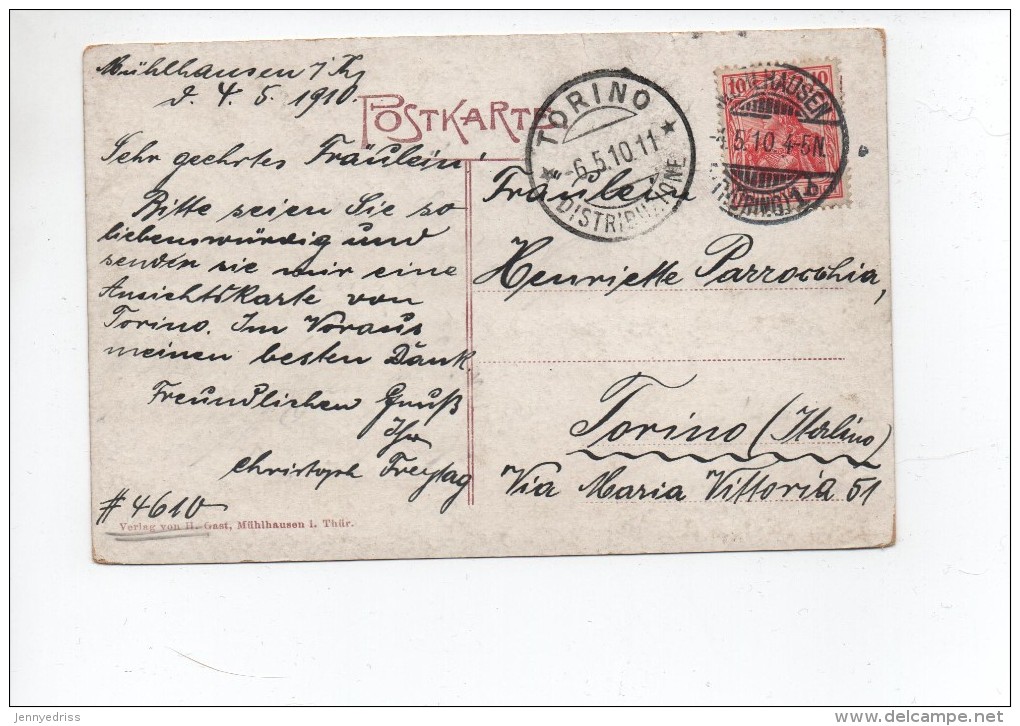 Mühlhausen i/Th,
d. 4. 5. 1910.
POSTKARTE
Sehr geehrtes Fräulein!
Bitte seien Sie so
liebenswürdig und
senden sie mir eine
Ansichtskarte von
Torino. Im Voraus
meinen besten Dank.
Freundlichen Gruß
Ihr
Christoph Freytag
#4610
Verlag von H. Gast, Mühlhausen i. Thür.
TORINO
-6.5.10.11
DISTRIBUZIONE
10 10
MÜHLHAUSEN
5.10. 4-5N.
(THÜRING)
Fräulein
Henriette Parrocchia,
Torino (Italino)
Via Maria Vittoria 51
jennyedriss
delcampe.net